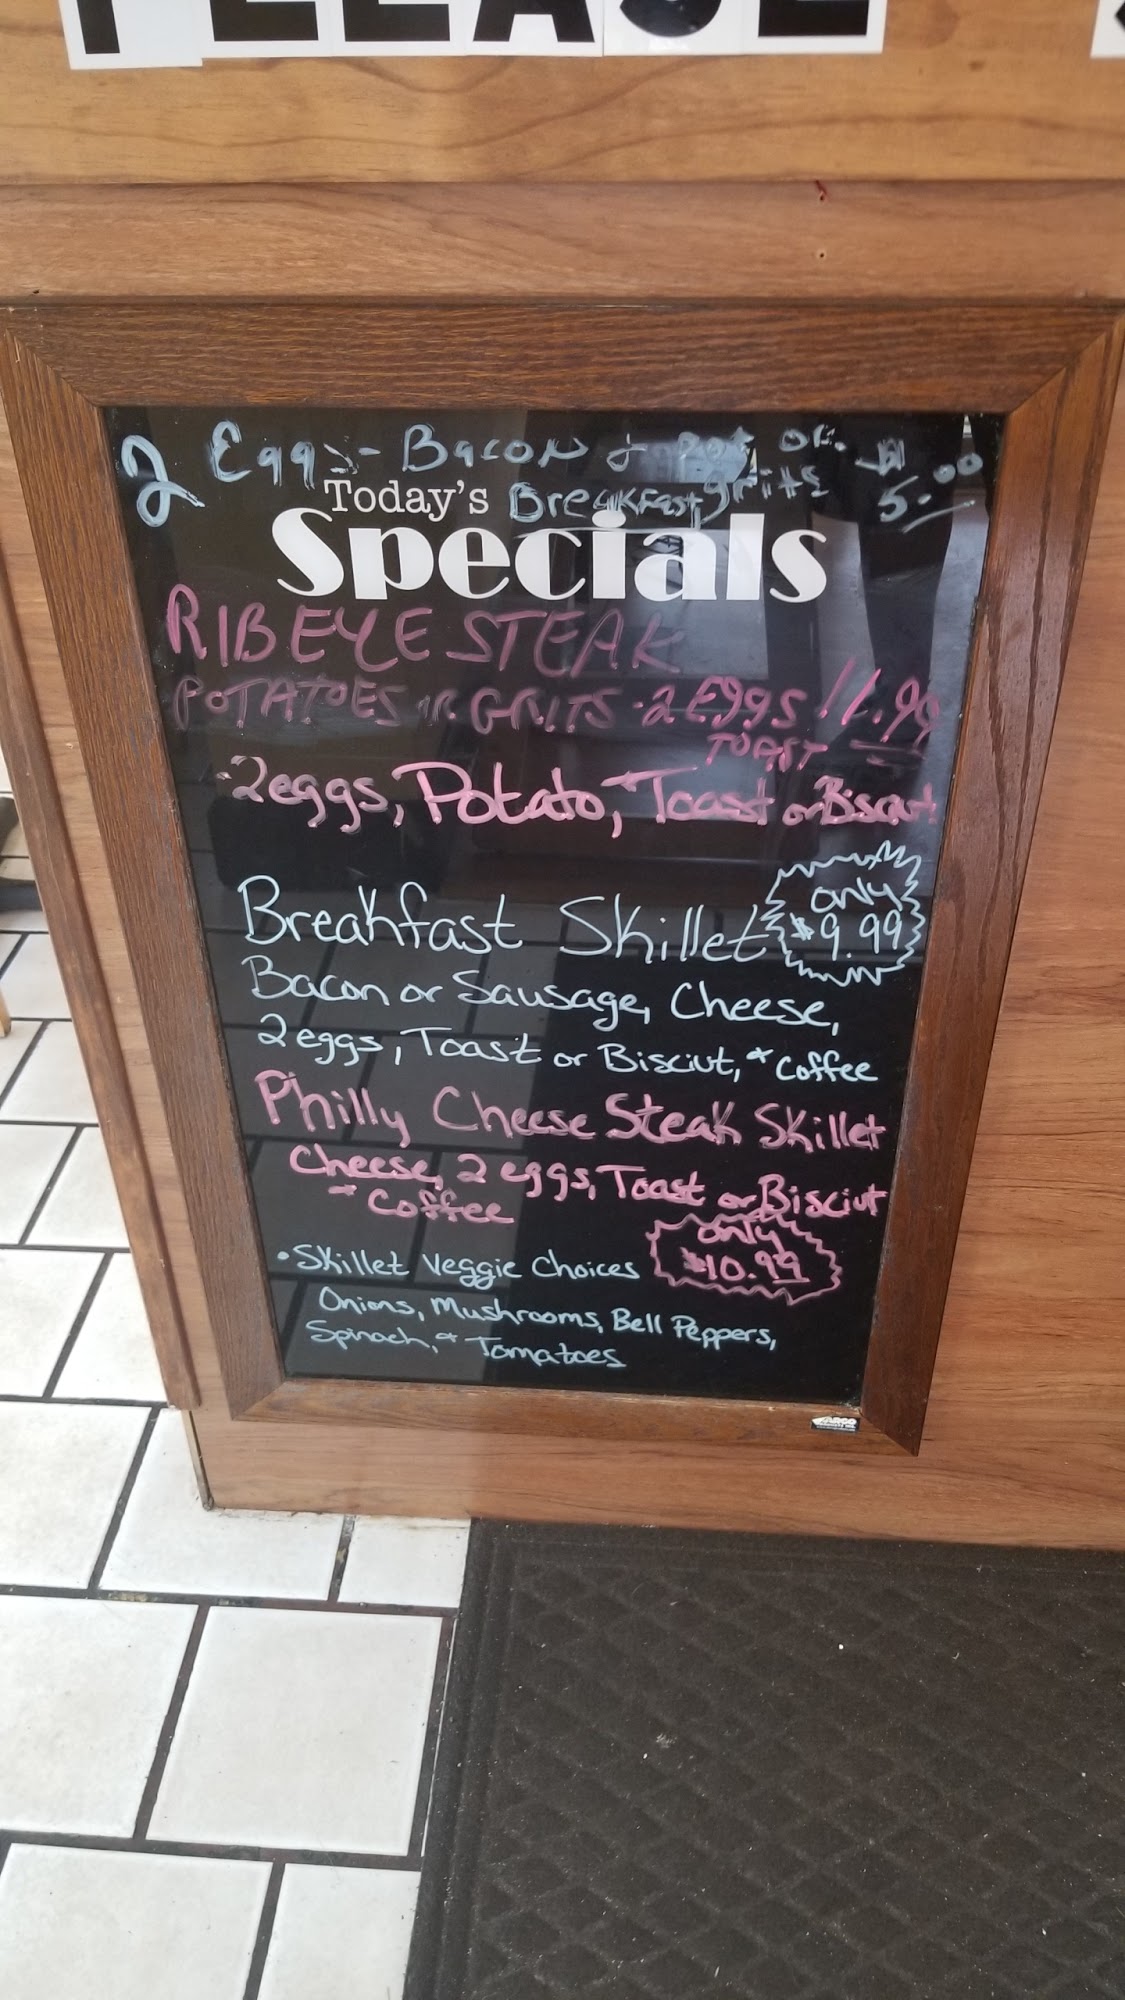 PLEASE
2 Eggs - Bacon & Pot or
Today's Breakfast grits 5.00
Specials
RIBEYE STEAK
POTATOES or GRITS - 2 Eggs 11.99
TOAST
- 2 eggs, Potato, + Toast or Bisciut
Breakfast Skillet
only
$9.99
Bacon or Sausage, Cheese,
2 eggs, Toast or Bisciut, + Coffee
Philly Cheese Steak Skillet
Cheese, 2 eggs, Toast or Bisciut
+ Coffee
only
$10.99
• Skillet Veggie Choices
Onions, Mushrooms, Bell Peppers,
Spinach, + Tomatoes
ARGO